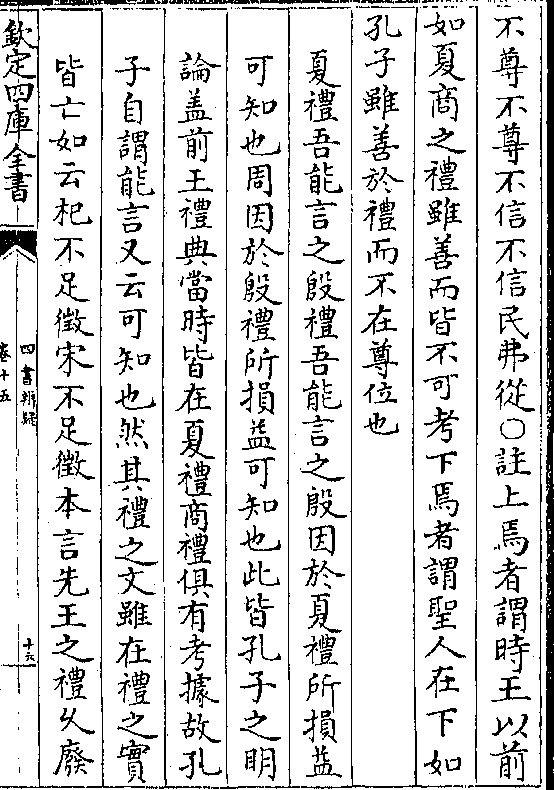 不尊不尊不信不信民弗從○註上焉者謂時王以前
如夏商之禮雖善而皆不可考下焉者謂聖人在下如
孔子雖善於禮而不在尊位也
夏禮吾能言之殷禮吾能言之殷因於夏禮所損益
可知也周因於殷禮所損益可知也此皆孔子之明
論盖前王禮典當時皆在夏禮商禮俱有考據故孔
子自謂能言又云可知也然其禮之文雖在禮之實
皆亡如云杞不足徵宋不足徵本言先王之禮乆廢
欽定四庫全書
四書辨疑
卷十五
十六